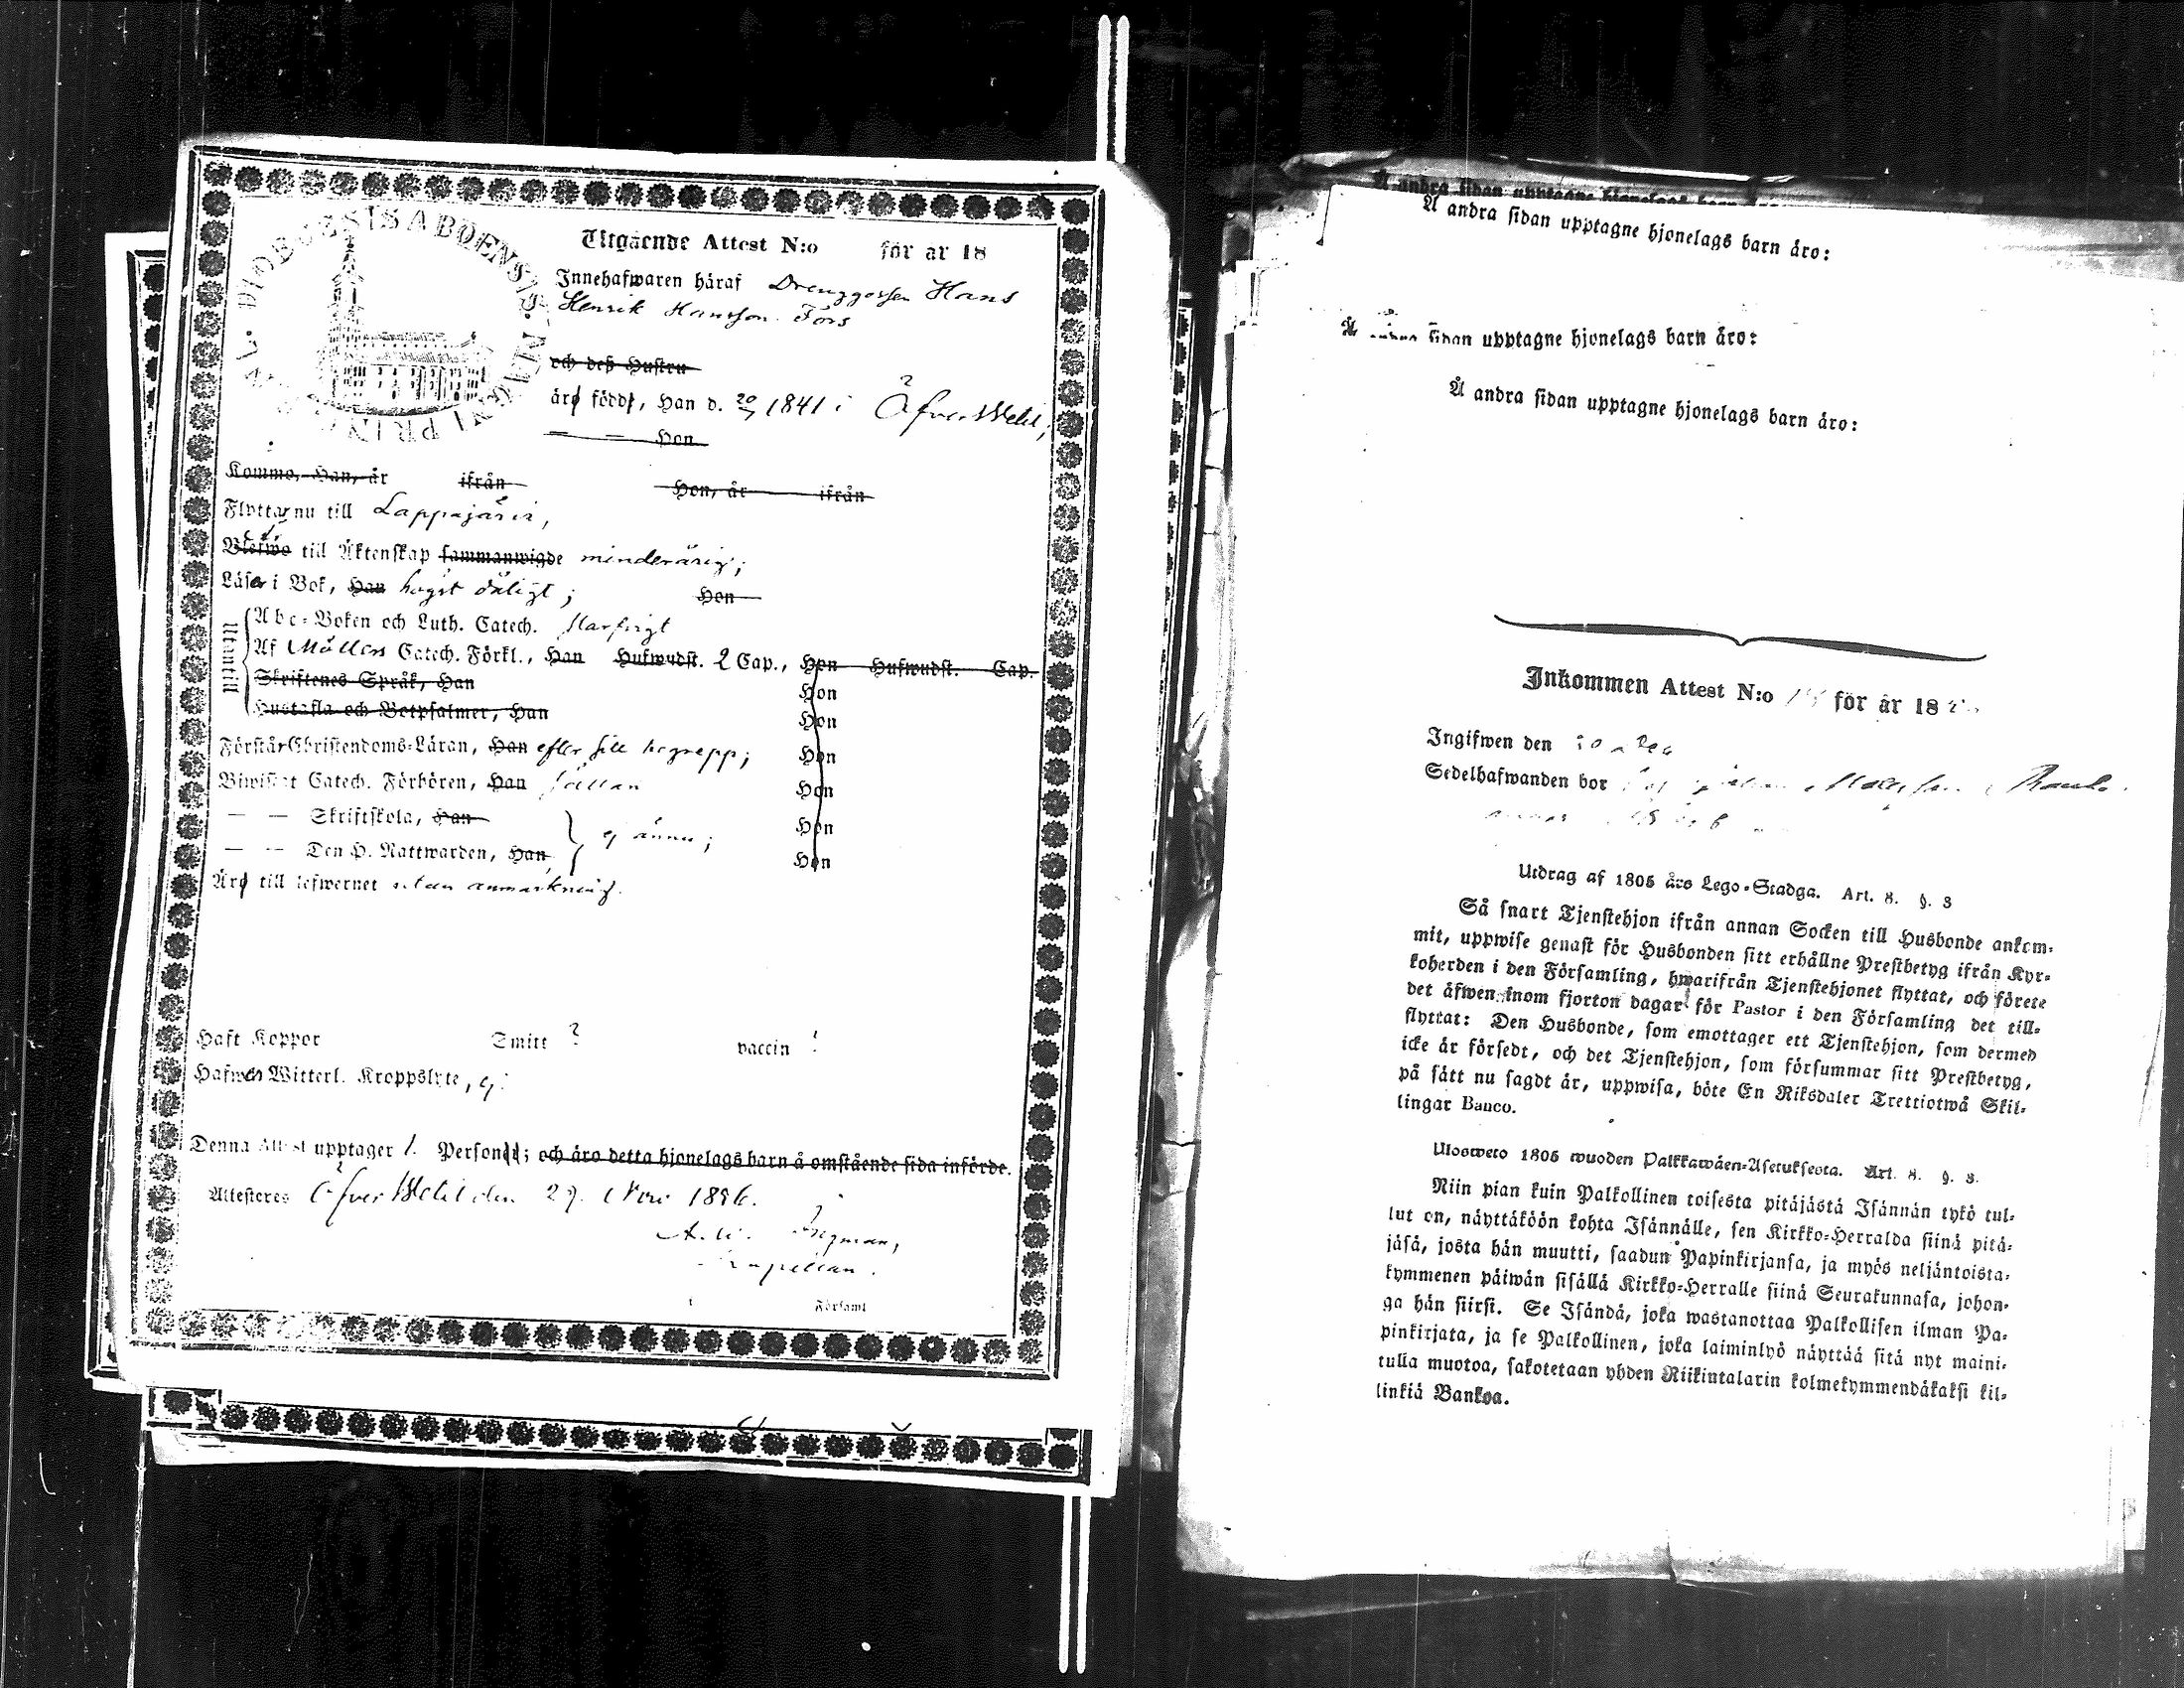 DIOECESIS ABOENSIS. MAGNI PRINC.
Utgående Attest N:o för år 18
Innehafwaren häraf Drenggossen Hans
Henrik Hansson Fors
och deß Hustru
äro född, Han d. 20 1841 i Öfver Wetil,
Hon
Komme, Han, år ifrån Hon, år ifrån
Flyttar nu till Lappajärvi,
till Äktenskap sammanwigde minderårig;
Läser i Bok, Han högst dåligt; Hon
Utantill
Abc-Boken och Luth. Catech. Slarfvigt
Af Möllers Catech. Förkl., Han Hufwudst. 2 Cap., Hon Hufwudst. Cap.
Skriftenes Språk, Han Hon
Hustafla och Botpsalmer, Han Hon
Förstår Christendoms-Läran, Han efter sitt begrepp; Hon
Biwistat Catech. Förhören, Han sällan Hon
— — Skriftskola, Han Hon
ej ännu;
— — Den H. Nattwarden, Han Hon
Äro till lefwernet utan anmärkning.
Haft Koppor Smitt ? vaccin ?
Hafwer Witterl. Kroppslyte, ej.
Denna Attest upptager 1. Person; och äro detta hjonelags barn å omstående sida införde.
Attesteras Öfver Wetil den 29. Nov. 1856.
Kapellan.
Församl
Å andra sidan upptagne hjonelags barn äro:
Å andra sidan upptagne hjonelags barn äro:
Å andra sidan upptagne hjonelags barn äro:
Å andra sidan upptagne hjonelags barn äro:
Inkommen Attest N:o för år 18
Ingifwen den
Sedelhafwanden bor
Utdrag af 1805 års Lego-Stadga. Art. 8. §. 3
Så snart Tjenstehjon ifrån annan Socken till Husbonde ankom-
mit, uppwise genast för Husbonden sitt erhållne Prestbetyg ifrån Kyr-
koherden i den Församling, hwarifrån Tjenstehjonet flyttat, och förete
det äfwen inom fjorton dagar för Pastor i den Församling det till-
flyttat: Den Husbonde, som emottager ett Tjenstehjon, som dermed
icke är försedt, och det Tjenstehjon, som försummar sitt Prestbetyg,
på sätt nu sagdt är, uppwisa, böte En Riksdaler Trettiotwå Skil-
lingar Banco.
Ulosweto 1805 wuoden Palkkawäen-Asetuksesta. Art. 8. §. 3.
Niin pian kuin Palkollinen toisesta pitäjästä Isännän tykö tul-
lut on, näyttäköön kohta Isännälle, sen Kirkko-Herralda siinä pitä-
jäsä, josta hän muutti, saadun Papinkirjansa, ja myös neljäntoista-
kymmenen päiwän sisällä Kirkko-Herralle siinä Seurakunnasa, johon-
ga hän siirsi. Se Isändä, joka wastanottaa Palkollisen ilman Pa-
pinkirjata, ja se Palkollinen, joka laiminlyö näyttää sitä nyt maini-
tulla muotoa, sakotetaan yhden Riikintalarin kolmekymmendäkaksi kil-
linkiä Bankoa.